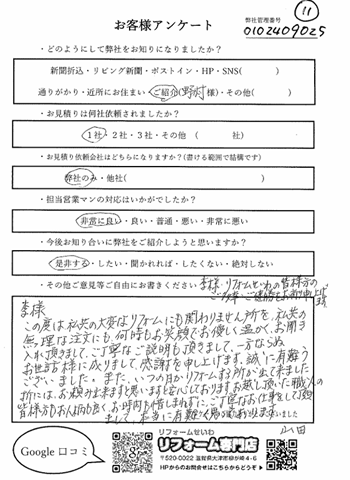 ⑪
お客様アンケート
弊社管理番号
0102409025
・どのようにして弊社をお知りになりましたか？
新聞折込・リビング新聞・ポストイン・HP・SNS( )
通りがかり・近所にお住まい・ご紹介(野村様)・その他( )
・お見積りは何社依頼されましたか？
1社・2社・3社・その他 ( 社)
・お見積り依頼会社はどちらになりますか？(書ける範囲で結構です)
弊社のみ・他社( )
・担当営業マンの対応はいかがでしたか？
非常に良い・良い・普通・悪い・非常に悪い
・今後お知り合いに弊社をご紹介しようと思いますか？
是非する・したい・聞かれれば・したくない・絶対しない
・その他ご意見等ご自由にお書きください
李様、リフォームせいわの皆様方の
李様
この度は私共の大変なリフォームにも関わりませず所を、私共の
無理な注文にも何時もお笑顔でお優しく温かく、お聞き
入れ頂きまして、ご丁寧なご説明も頂きまして、一方ならぬ
お世話様に成りまして、感謝を申し上げます。誠に有難う
ございました。また、いつの日かリフォームする所が出て来ました
折には、お頼み出来ますと思いますと安心しております お越し頂いた職人の
皆様方もお人柄も良く、お時間も惜しまれずにご丁寧なお仕事をして頂き
まして、本当に有難く
いました
山田
Google 口コミ
リフォームせいわ
リフォーム専門店
〒520-0022 滋賀県大津市柳が崎4-6
HPからのお問合せはこちらからどうぞ